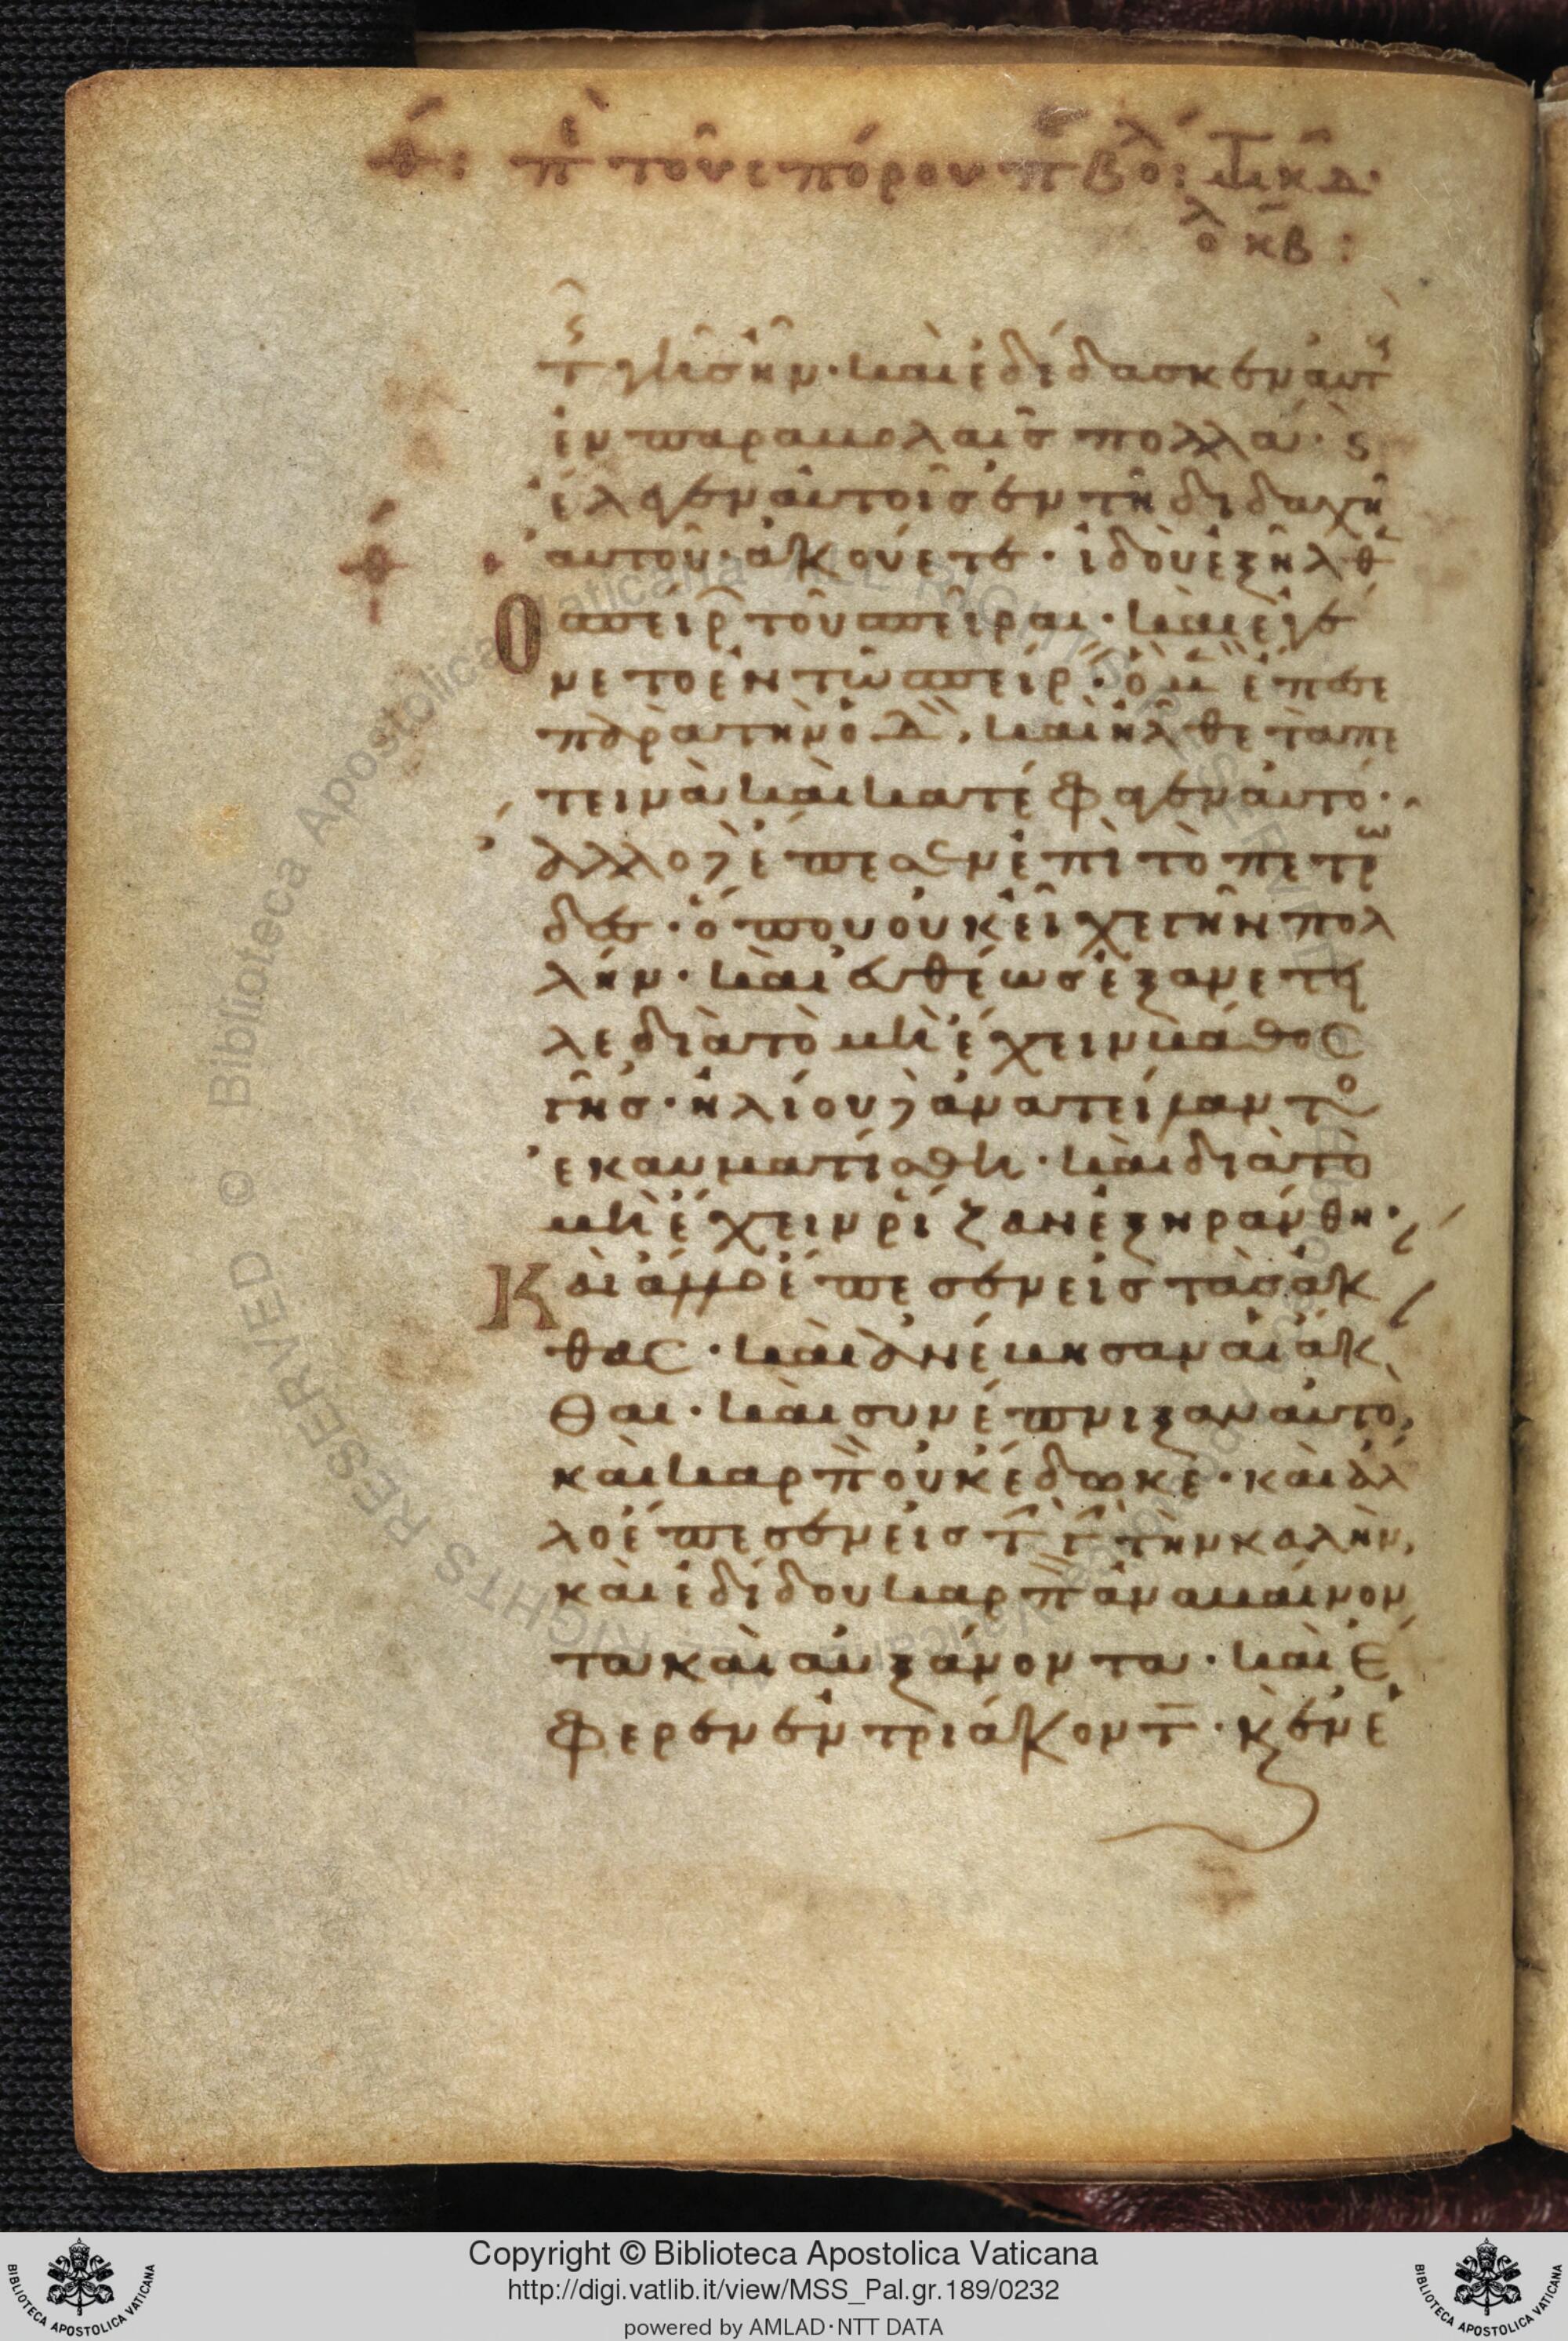 θ : π τοῦ σπόρου π β̅ο̅ : ι̅κ̅δ̅
ο κβ :
τ̅ γῆς ἦν· καὶ ἐδίδασκεν αὐτ
ἐν παραβολαῖς πολλά· ϛ
ἔλεγεν αὐτοῖς ἐν τῆ διδαχῆ
αὐτοῦ· ἀκούετε· ἰδοὺ ἐξῆλθ
ὁ σπείρ τοῦ σπεῖραι· καὶ ἐγέ
νετο ἐν τῶ σπείρ· ὃ μ ἔπεσε
παρὰ τὴν ὁδ, καὶ ἦλθε τὰ πε
τεινὰ καὶ κατέφαγεν αὐτό·
ἄλλο δ ἔπεσεν ἐπὶ τὸ πετρῶ
δες· ὅπου οὐκ εἶχε γῆν πολ
λήν· καὶ εὐθέως ἐξανέτει
λε διὰ τὸ μὴ ἔχειν βάθος
γῆς· ἡλίου δ ἀνατείλαντο
ἐκαυματίσθη· καὶ διὰ τὸ
μὴ ἔχειν ῥίζαν ἐξηράνθη·
Καὶ ἄλλο ἔπεσεν εἰς τὰς ἀκ
θας· καὶ ἀνέβησαν αἱ ἀκ
θαι· καὶ συνέπνιξαν αὐτὸ,
καὶ καρπ οὐκ ἔδωκε· καὶ ἄλ
λο ἔπεσεν εἰς τ̅ γ̅ τὴν καλὴν,
καὶ ἐδίδου καρπ ἀναβαίνον
τα καὶ αὐξάνοντα· καὶ ἔ
φερεν ἐν τριάκοντ̅· κ ἐν ἑ
Copyright © Biblioteca Apostolica Vaticana
http://digi.vatlib.it/view/MSS_Pal.gr.189/0232
powered by AMLAD·NTT DATA
BIBLIOTECA APOSTOLICA VATICANA
BIBLIOTECA APOSTOLICA VATICANA